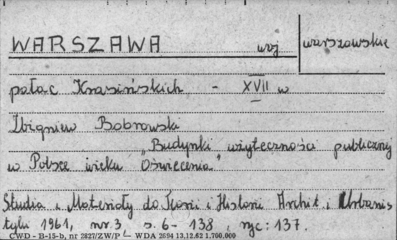 WARSZAWA woj warszawskie
pałac Krasińskich - XVII w
Zbigniew Bobrowski
"Budynki użyteczności publicznej
w Polsce wieku Oświecenia"
Studia i Materiały do Teorii i Historii Archit. i Urbanis
tyki 1961, nr. 3 s. 6-138, ryc: 137.
CWD - B-15-b, nr 2827/ZW/P - WDA 2694 13.12.62 1.700.000